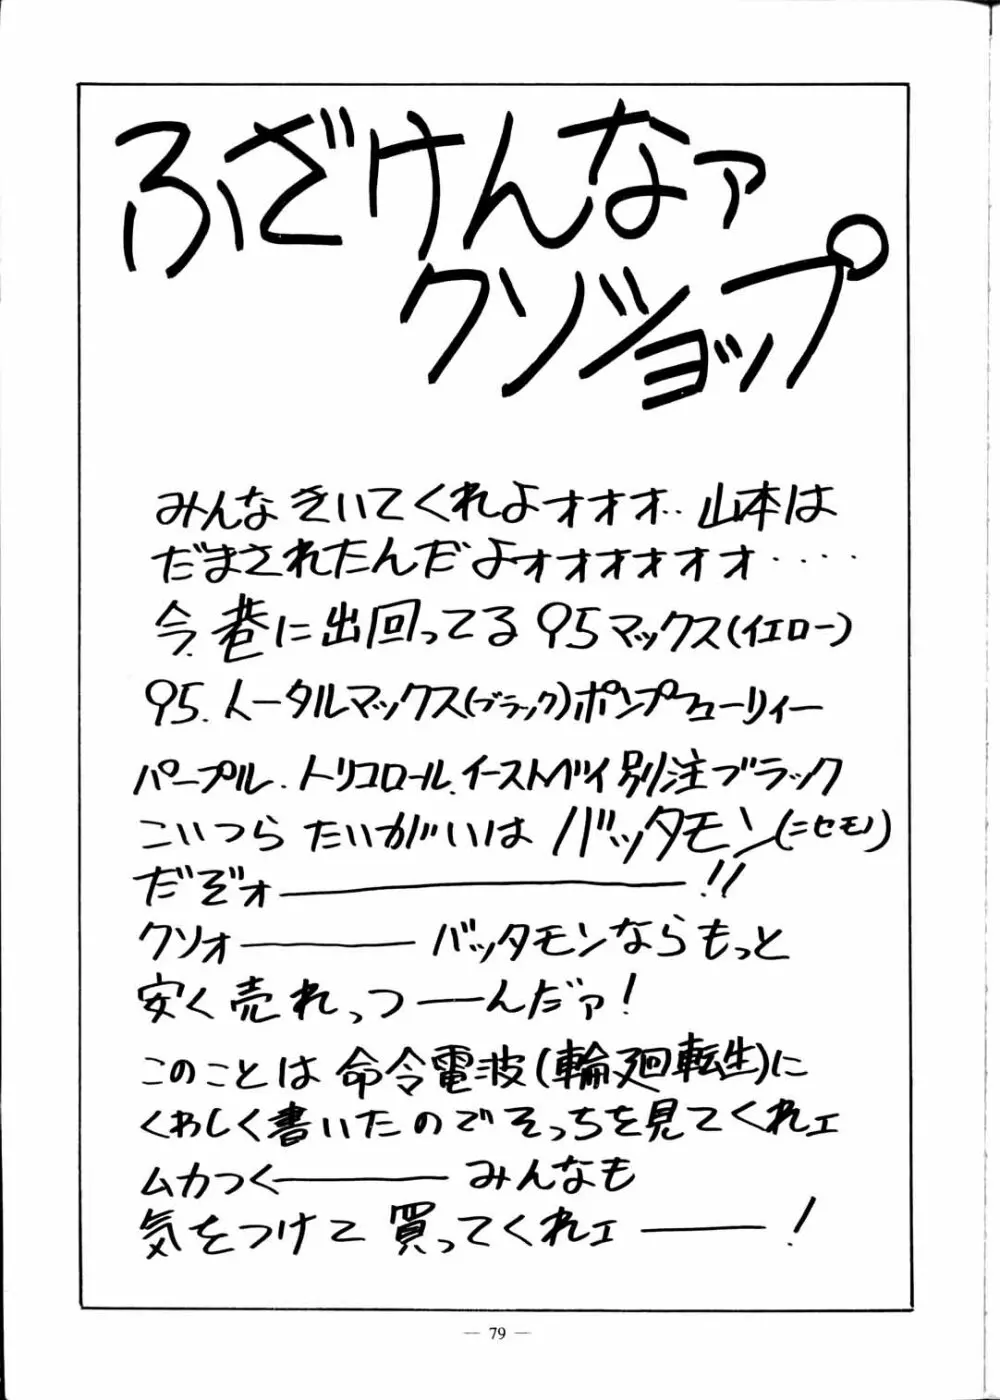 ふざけんなァ
クソショップ
みんなきいてくれよォオオ‥山本は
だまされたんだよォオオオオオ‥‥
今、巷に出回ってる95マックス(イエロー)
95.トータルマックス(ブラック)ポンプフューリィー
パープル.トリコロール.イーストベイ別注ブラック
こいつらたいがいはバッタモン(ニセモノ)
だぞォ――――――!!
クソォ―――バッタモンならもっと
安く売れっつ――んだァ!
このことは命令電波(輪廻転生)に
くわしく書いたのでそっちを見てくれェ
ムカつく―――みんなも
気をつけて買ってくれェ――!
— 79 —